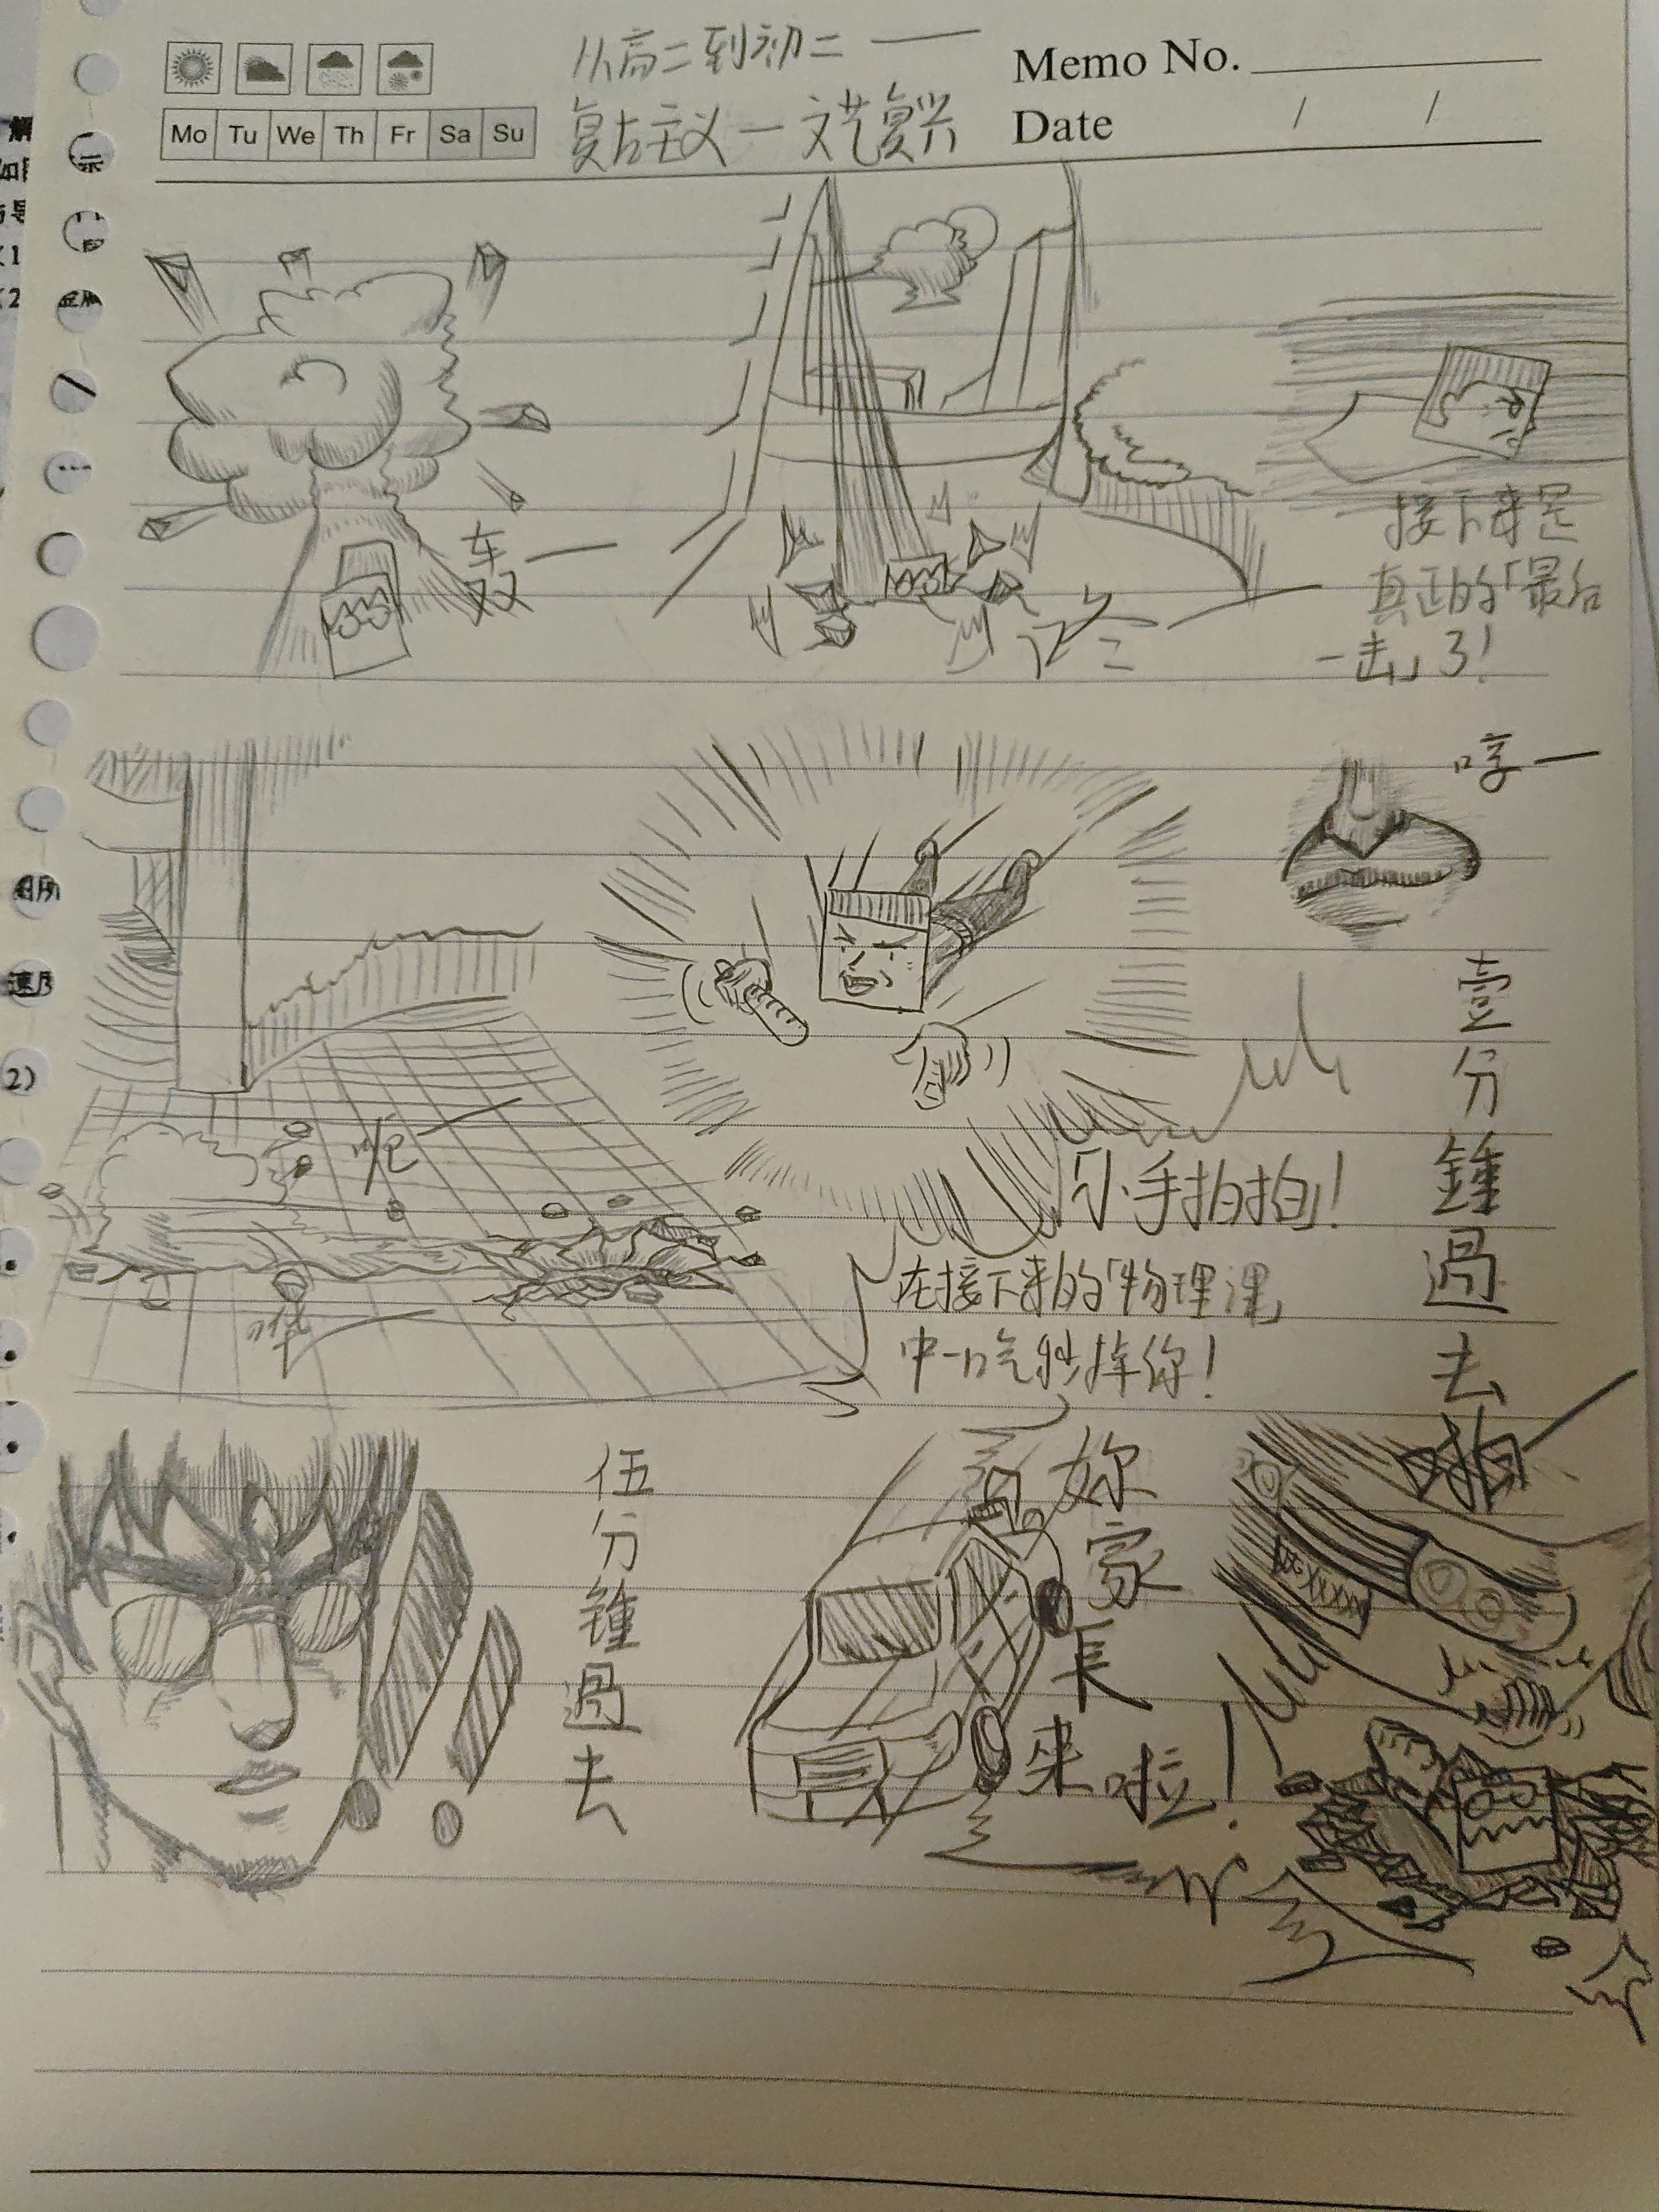 从高二到初二——
复古主义—文艺复兴
Memo No.
Date / /
Mo Tu We Th Fr Sa Su
轰—
接下来是
真正的「最后
一击」了!
哼—
壹分鍾過去
「小手拍拍」!
在接下来的「物理课」
中一口气炒掉你!
伍分鍾過去
妳家長来啦!
啪